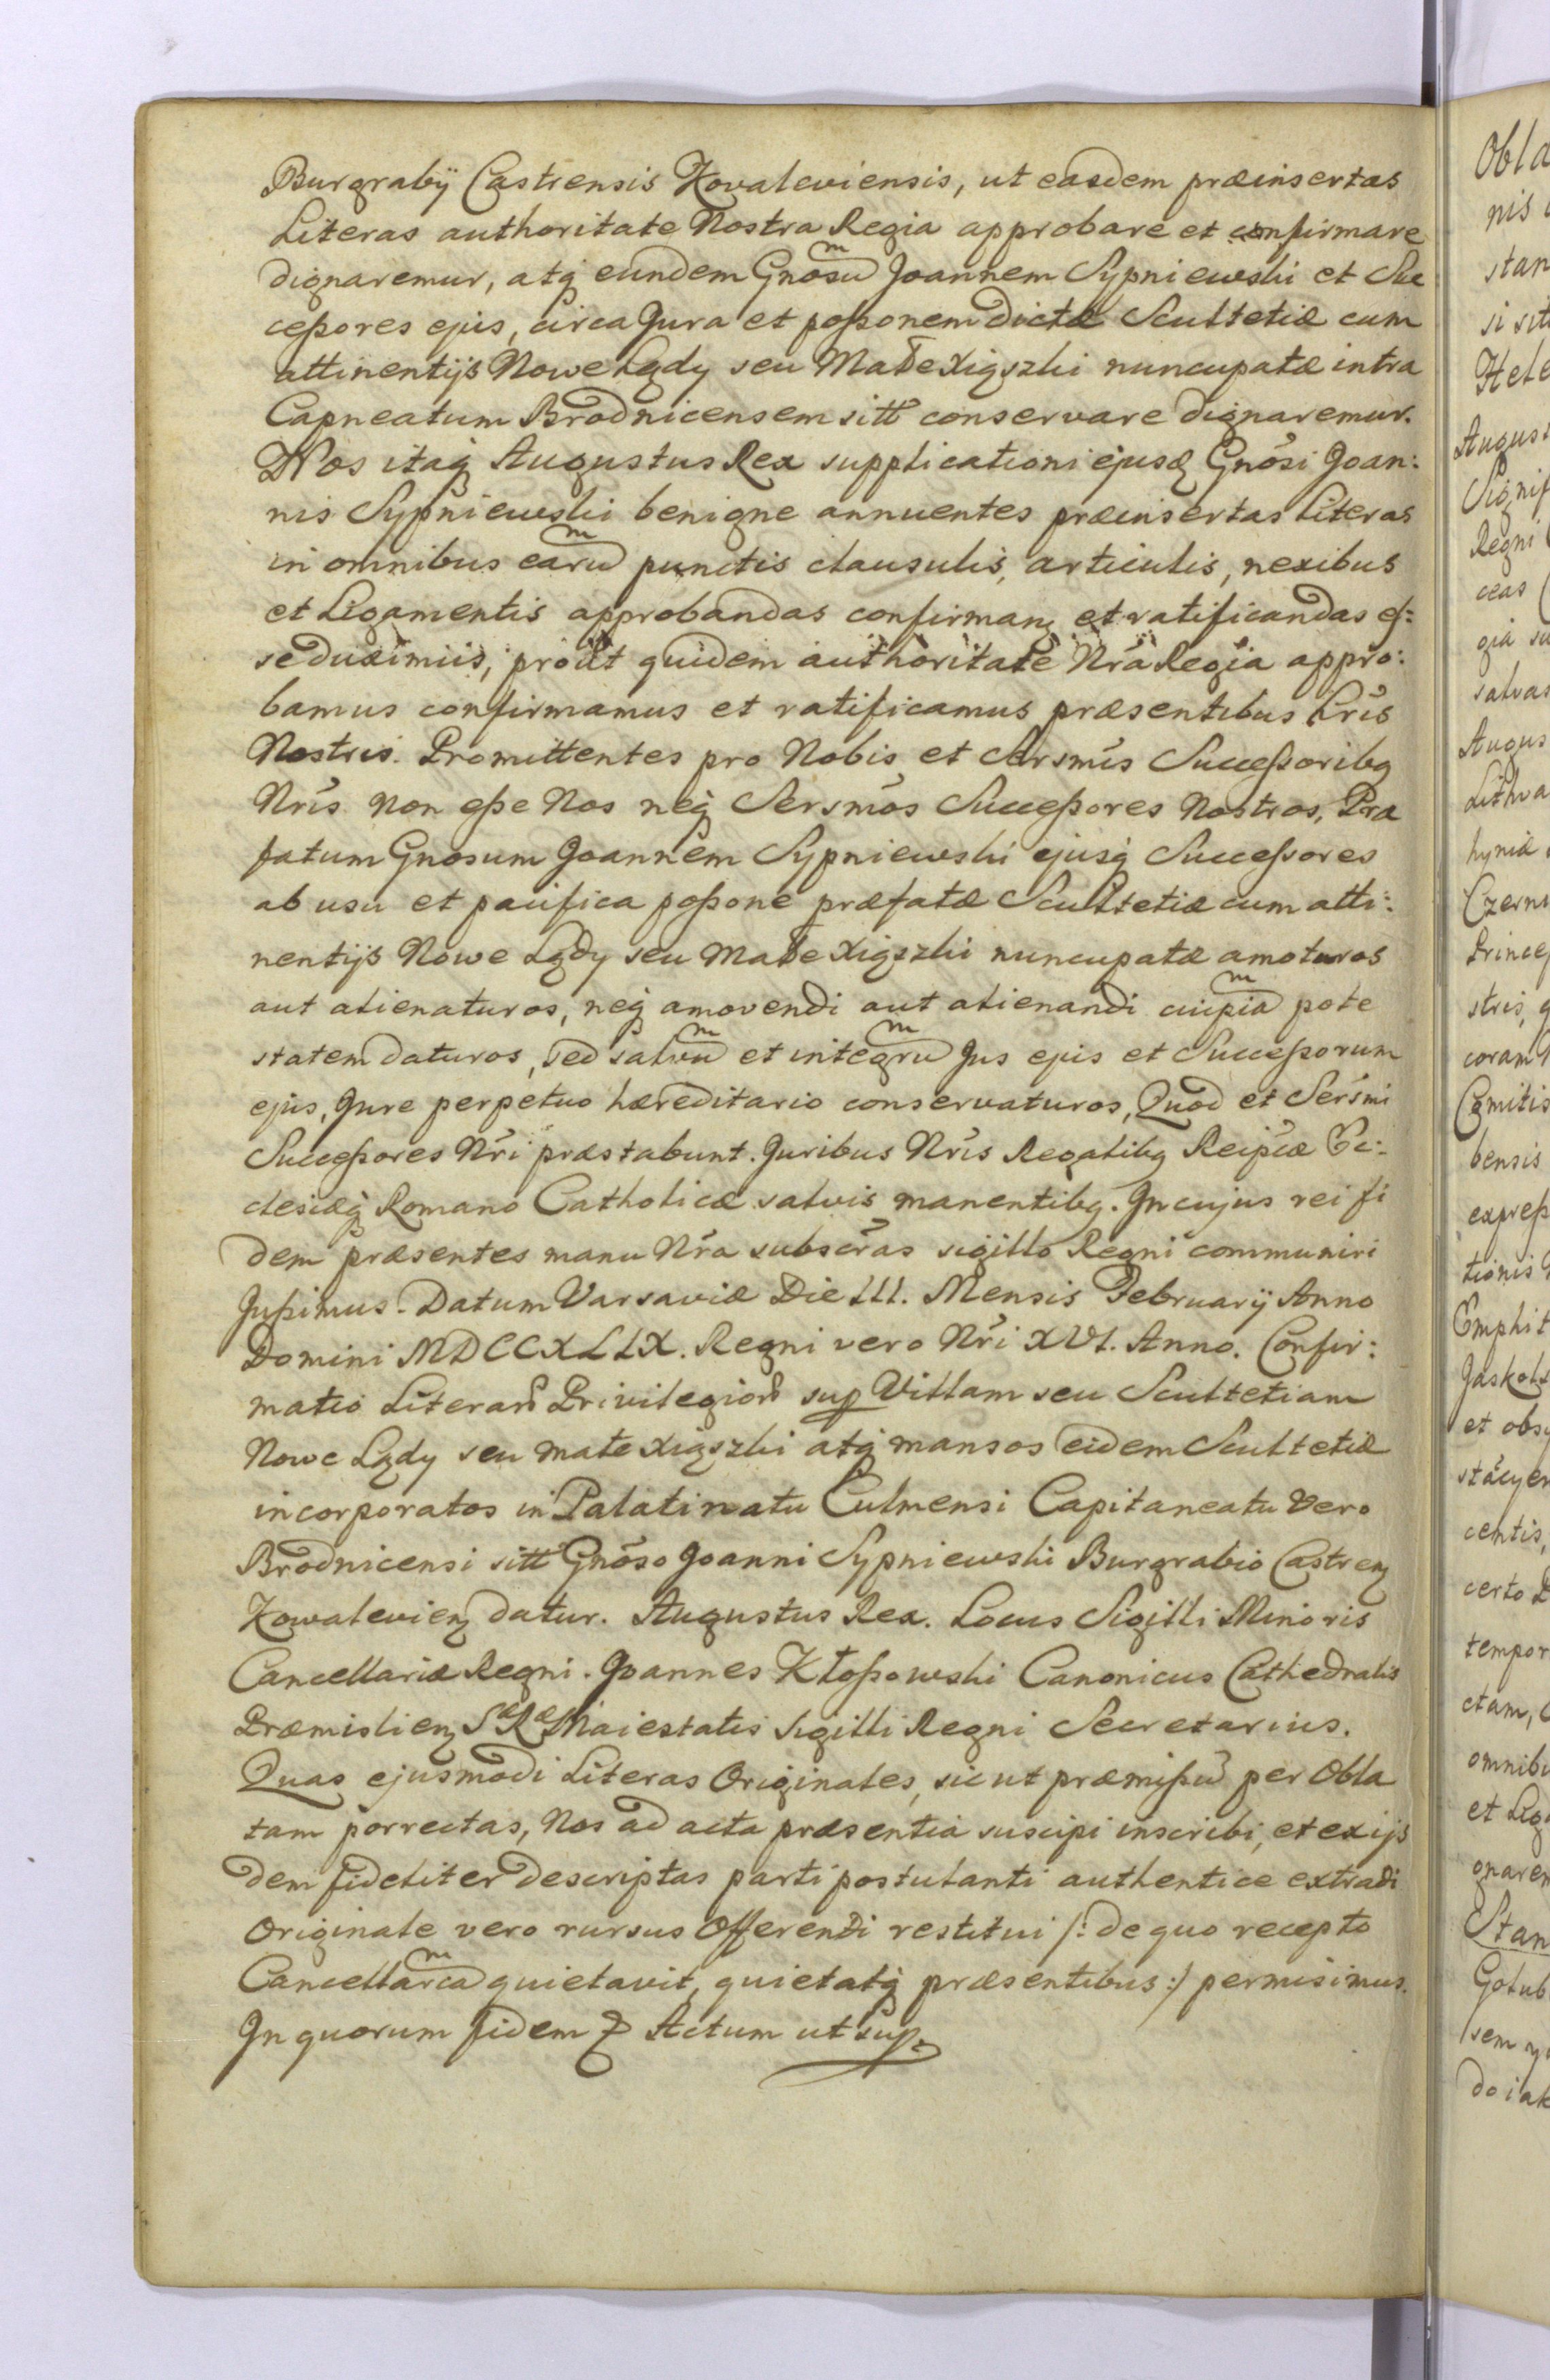 Burgrabÿ Castrensis Kovaleviensis, ut easdem præinsertas
Literas authoritate Nostra Regia approbare et confirmare
dignaremur, atq eundem Gnosũ Joannem Sypniewski et Suc
ceßores ejus, circa Jura et poßonem dictæ Scultetiæ cum
attinentijs Nowe Lądy seu Małe Xiąszki nuncupatæ intra
Capneatum Brodnicensem sitt conservare dignaremur.
Nos itaq Augustus Rex supplicationi ejusq Gnosi Joan:
nis Sypniewski benigne annuentes præinsertas Literas
in omnibus earũ punctis clausulis, articulis, nexibus
et Ligamentis approbandas confirmanz et ratificandas eß:
se duximus, prout quidem authoritate Nra Regia appro:
bamus confirmamus et ratificamus præsentibus Lris
Nostris. Promittentes pro Nobis et Sersmis Succeßoribq
Nris non eße Nos neq Sersmos Succeßores Nostros, Præ
fatum Gnosum Joannem Sypniewski ejusq Succeßores
ab usu et pacifica poßone præfatæ Scultetiæ cum atti:
nentijs Nowe Lądy seu Małe Xiąszki nuncupatæ amoturos
aut alienaturos, neq amovendi aut alienandi cuipiã pote
statem daturos, sed salvũ et integrũ Jus ejus et Succeßorum
ejus, Jure perpetuo hæreditario conservaturos, Quod et Sersmi
Succeßores Nri præstabunt. Juribus Nris Regalibq Reipcæ Ec:
clesiæq Romano Catholicæ salvis manentibq. In cujus rei fi
dem præsentes manu Nra subscras sigillo Regni communiri
Jußimus. Datum Varsaviæ Die III. Mensis Februarÿ Anno
Domini MDCCXLIX. Regni vero Nri XVI. Anno. Confir:
matio Literarũ Privilegiorũ sup Villam seu Scultetiam
Nowe Lądy seu małe Xiąszki atq mansos eidem Scultetiæ
incorporatos in Palatinatu Culmensi Capitaneatu vero
Brodnicensi sitt Gnoso Joanni Sypniewski Burgrabio Castrenz
Kowalevienz datur. Augustus Rex. Locus Sigilli Minoris
Cancellariæ Regni. Joannes Kłoßowski Canonicus Cathedralis
Præmislienz Sæ Ræ Maiestatis Sigilli Regni Secretarius.
Quas ejusmodi Literas Originales, sicut præmißũ per Obla
tam porrectas, Nos ad acta præsentia suscipi inscribi, et ex ijs
dem fideliter descriptas parti postulanti authentice extradi
Originale vero rursus Offerenti restitui /: de quo recepto
Cancellarcã quietavit, quietatq præsentibus :/ permisimus.
In quorum fidem & Actum ut sup.